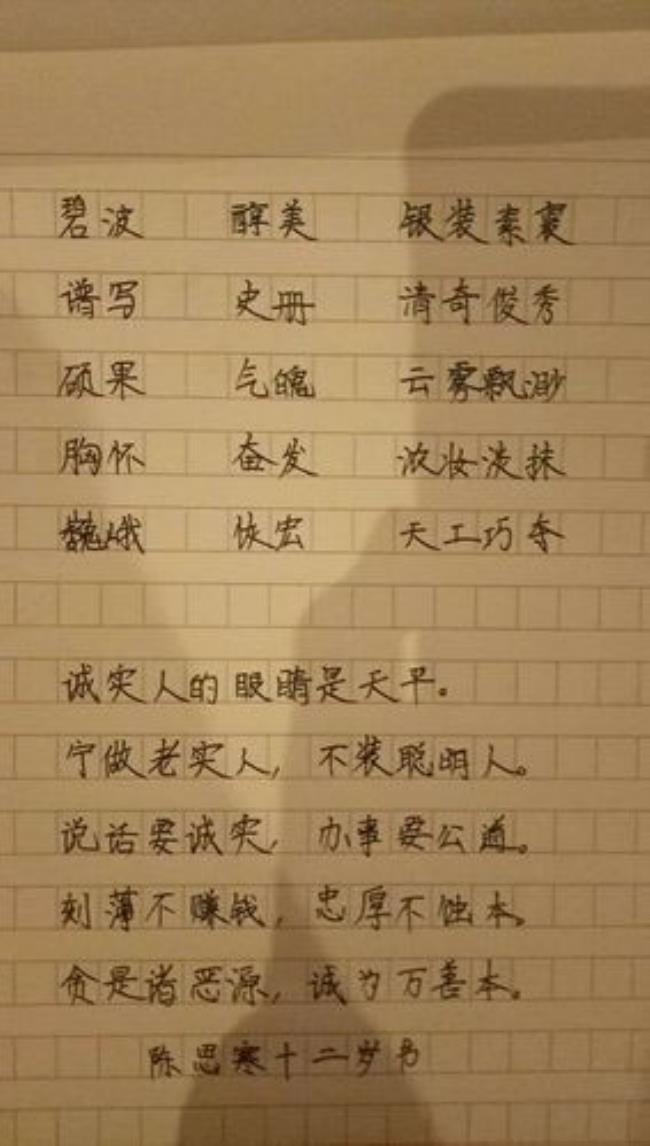 碧波 醇美 银装素裹
谱写 史册 清奇俊秀
硕果 气魄 云雾飘渺
胸怀 奋发 浓妆淡抹
巍峨 恢宏 天工巧夺
诚实人的眼睛是天平。
宁做老实人，不装聪明人。
说话要诚实，办事要公道。
刻薄不赚钱，忠厚不蚀本。
贪是诸恶源，诚为万善本。
陈思寒十二岁书